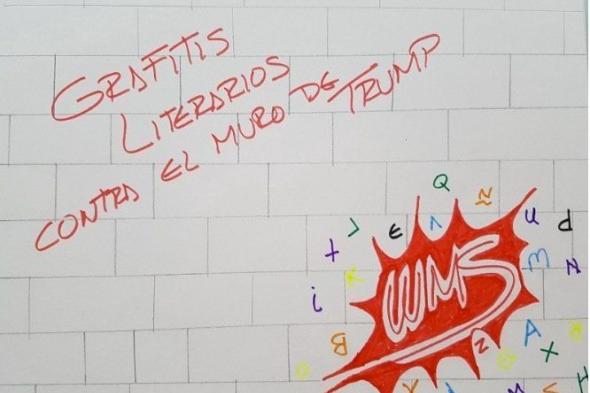 GRAFITIS
LITERARIOS
CONTRA EL MURO DE TRUMP
WMS